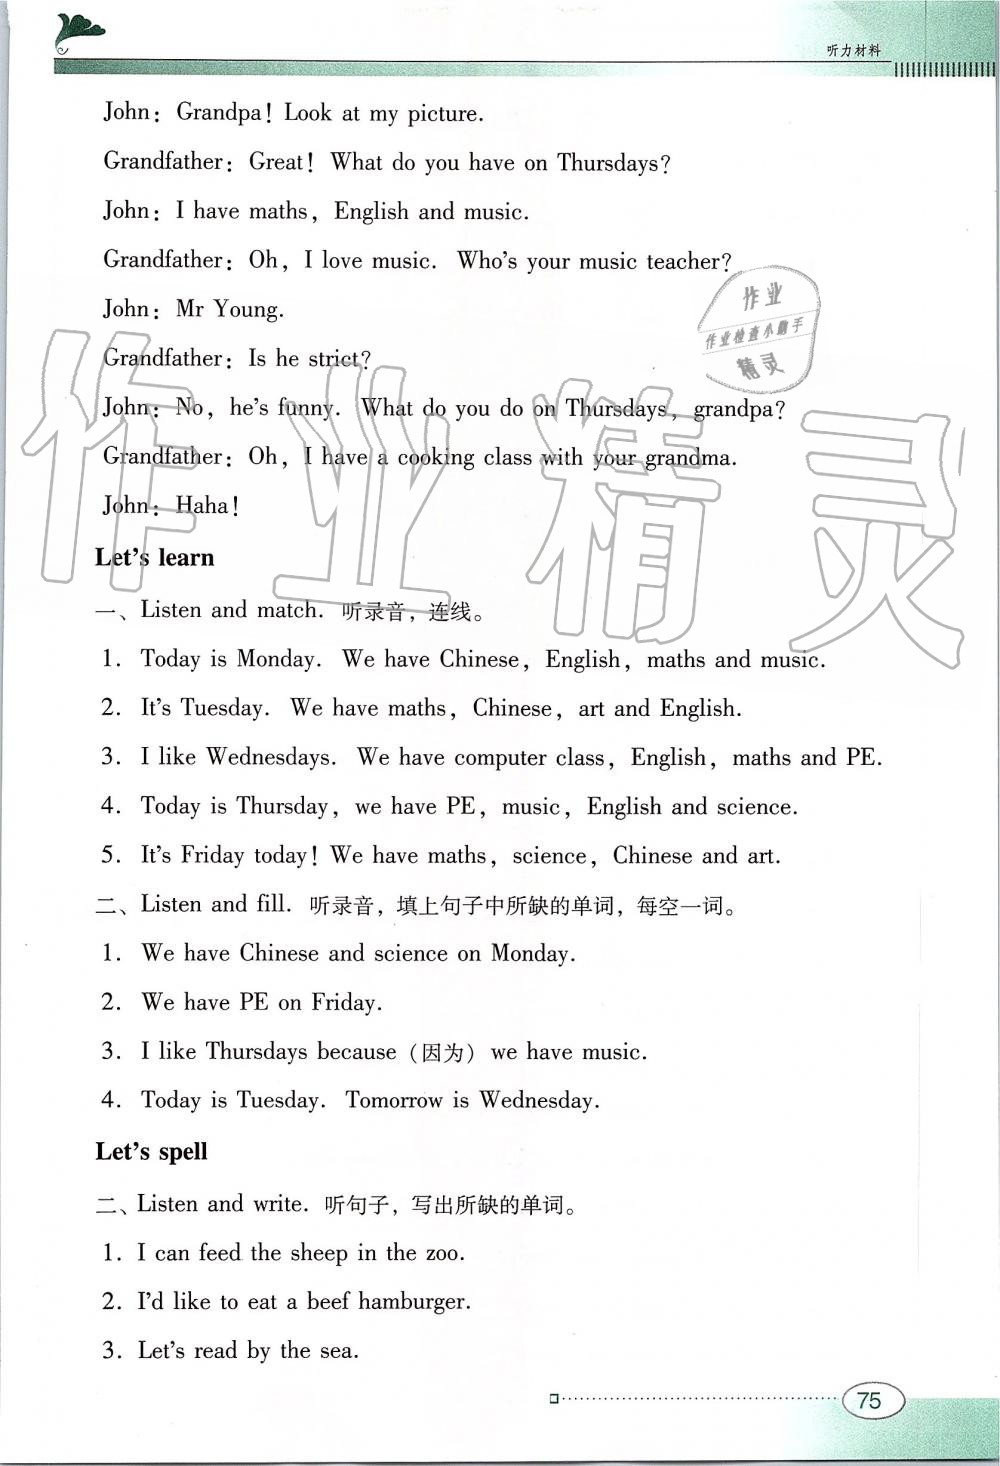 听力材料
John: Grandpa! Look at my picture.
Grandfather: Great! What do you have on Thursdays?
John: I have maths, English and music.
Grandfather: Oh, I love music. Who's your music teacher?
John: Mr Young.
Grandfather: Is he strict?
John: No, he's funny. What do you do on Thursdays, grandpa?
Grandfather: Oh, I have a cooking class with your grandma.
John: Haha!
Let's learn
一、Listen and match. 听录音，连线。
1. Today is Monday. We have Chinese, English, maths and music.
2. It's Tuesday. We have maths, Chinese, art and English.
3. I like Wednesdays. We have computer class, English, maths and PE.
4. Today is Thursday, we have PE, music, English and science.
5. It's Friday today! We have maths, science, Chinese and art.
二、Listen and fill. 听录音，填上句子中所缺的单词，每空一词。
1. We have Chinese and science on Monday.
2. We have PE on Friday.
3. I like Thursdays because（因为）we have music.
4. Today is Tuesday. Tomorrow is Wednesday.
Let's spell
二、Listen and write. 听句子，写出所缺的单词。
1. I can feed the sheep in the zoo.
2. I'd like to eat a beef hamburger.
3. Let's read by the sea.
75
作业
作业检查小助手
精灵
作业精灵